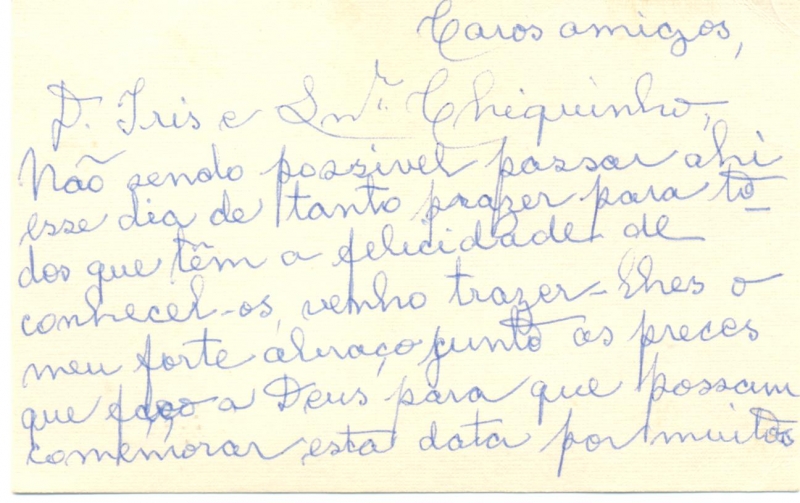 Caros amigos,
D. Iris e Snr. Chiquinho,
Não sendo possivel passar ahi
esse dia de tanto prazer para to-
dos que têm a felicidade de
conhecel-os, venho trazer-lhes o
meu forte abraço junto as preces
que faço a Deus para que possam
comemorar esta data por muitos